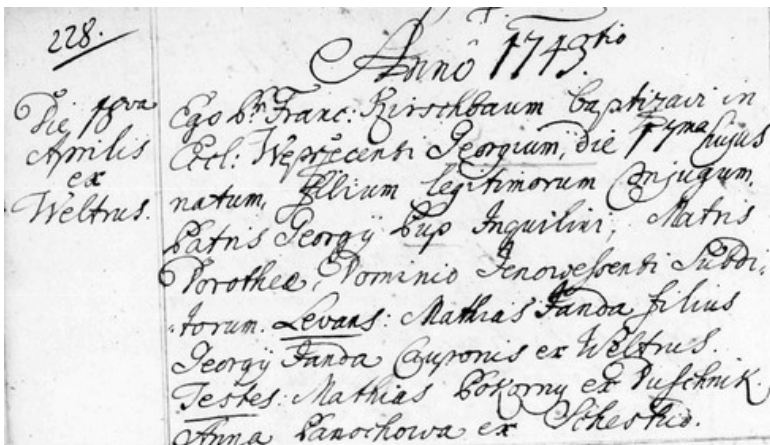 228.
Annô 1743tio
Die 18va
Aprilis
ex
Weltrus.
Ego Pr. Franc: Kirschbaum baptizavi in
Eccl: Weprzecensi Georgium, die 17ma hujus
natum, filium legitimorum Conjugum
Patris Georgÿ Pup Inquilini, Matris
Dorotheæ, Dominio Jenowessensi Subdi,
torum. Levans: Mathias Fanda filius
Georgÿ Fanda Cauponis ex Weltrus.
Testes: Mathias Pokorny ex Duschnik
Anna Panochowa ex